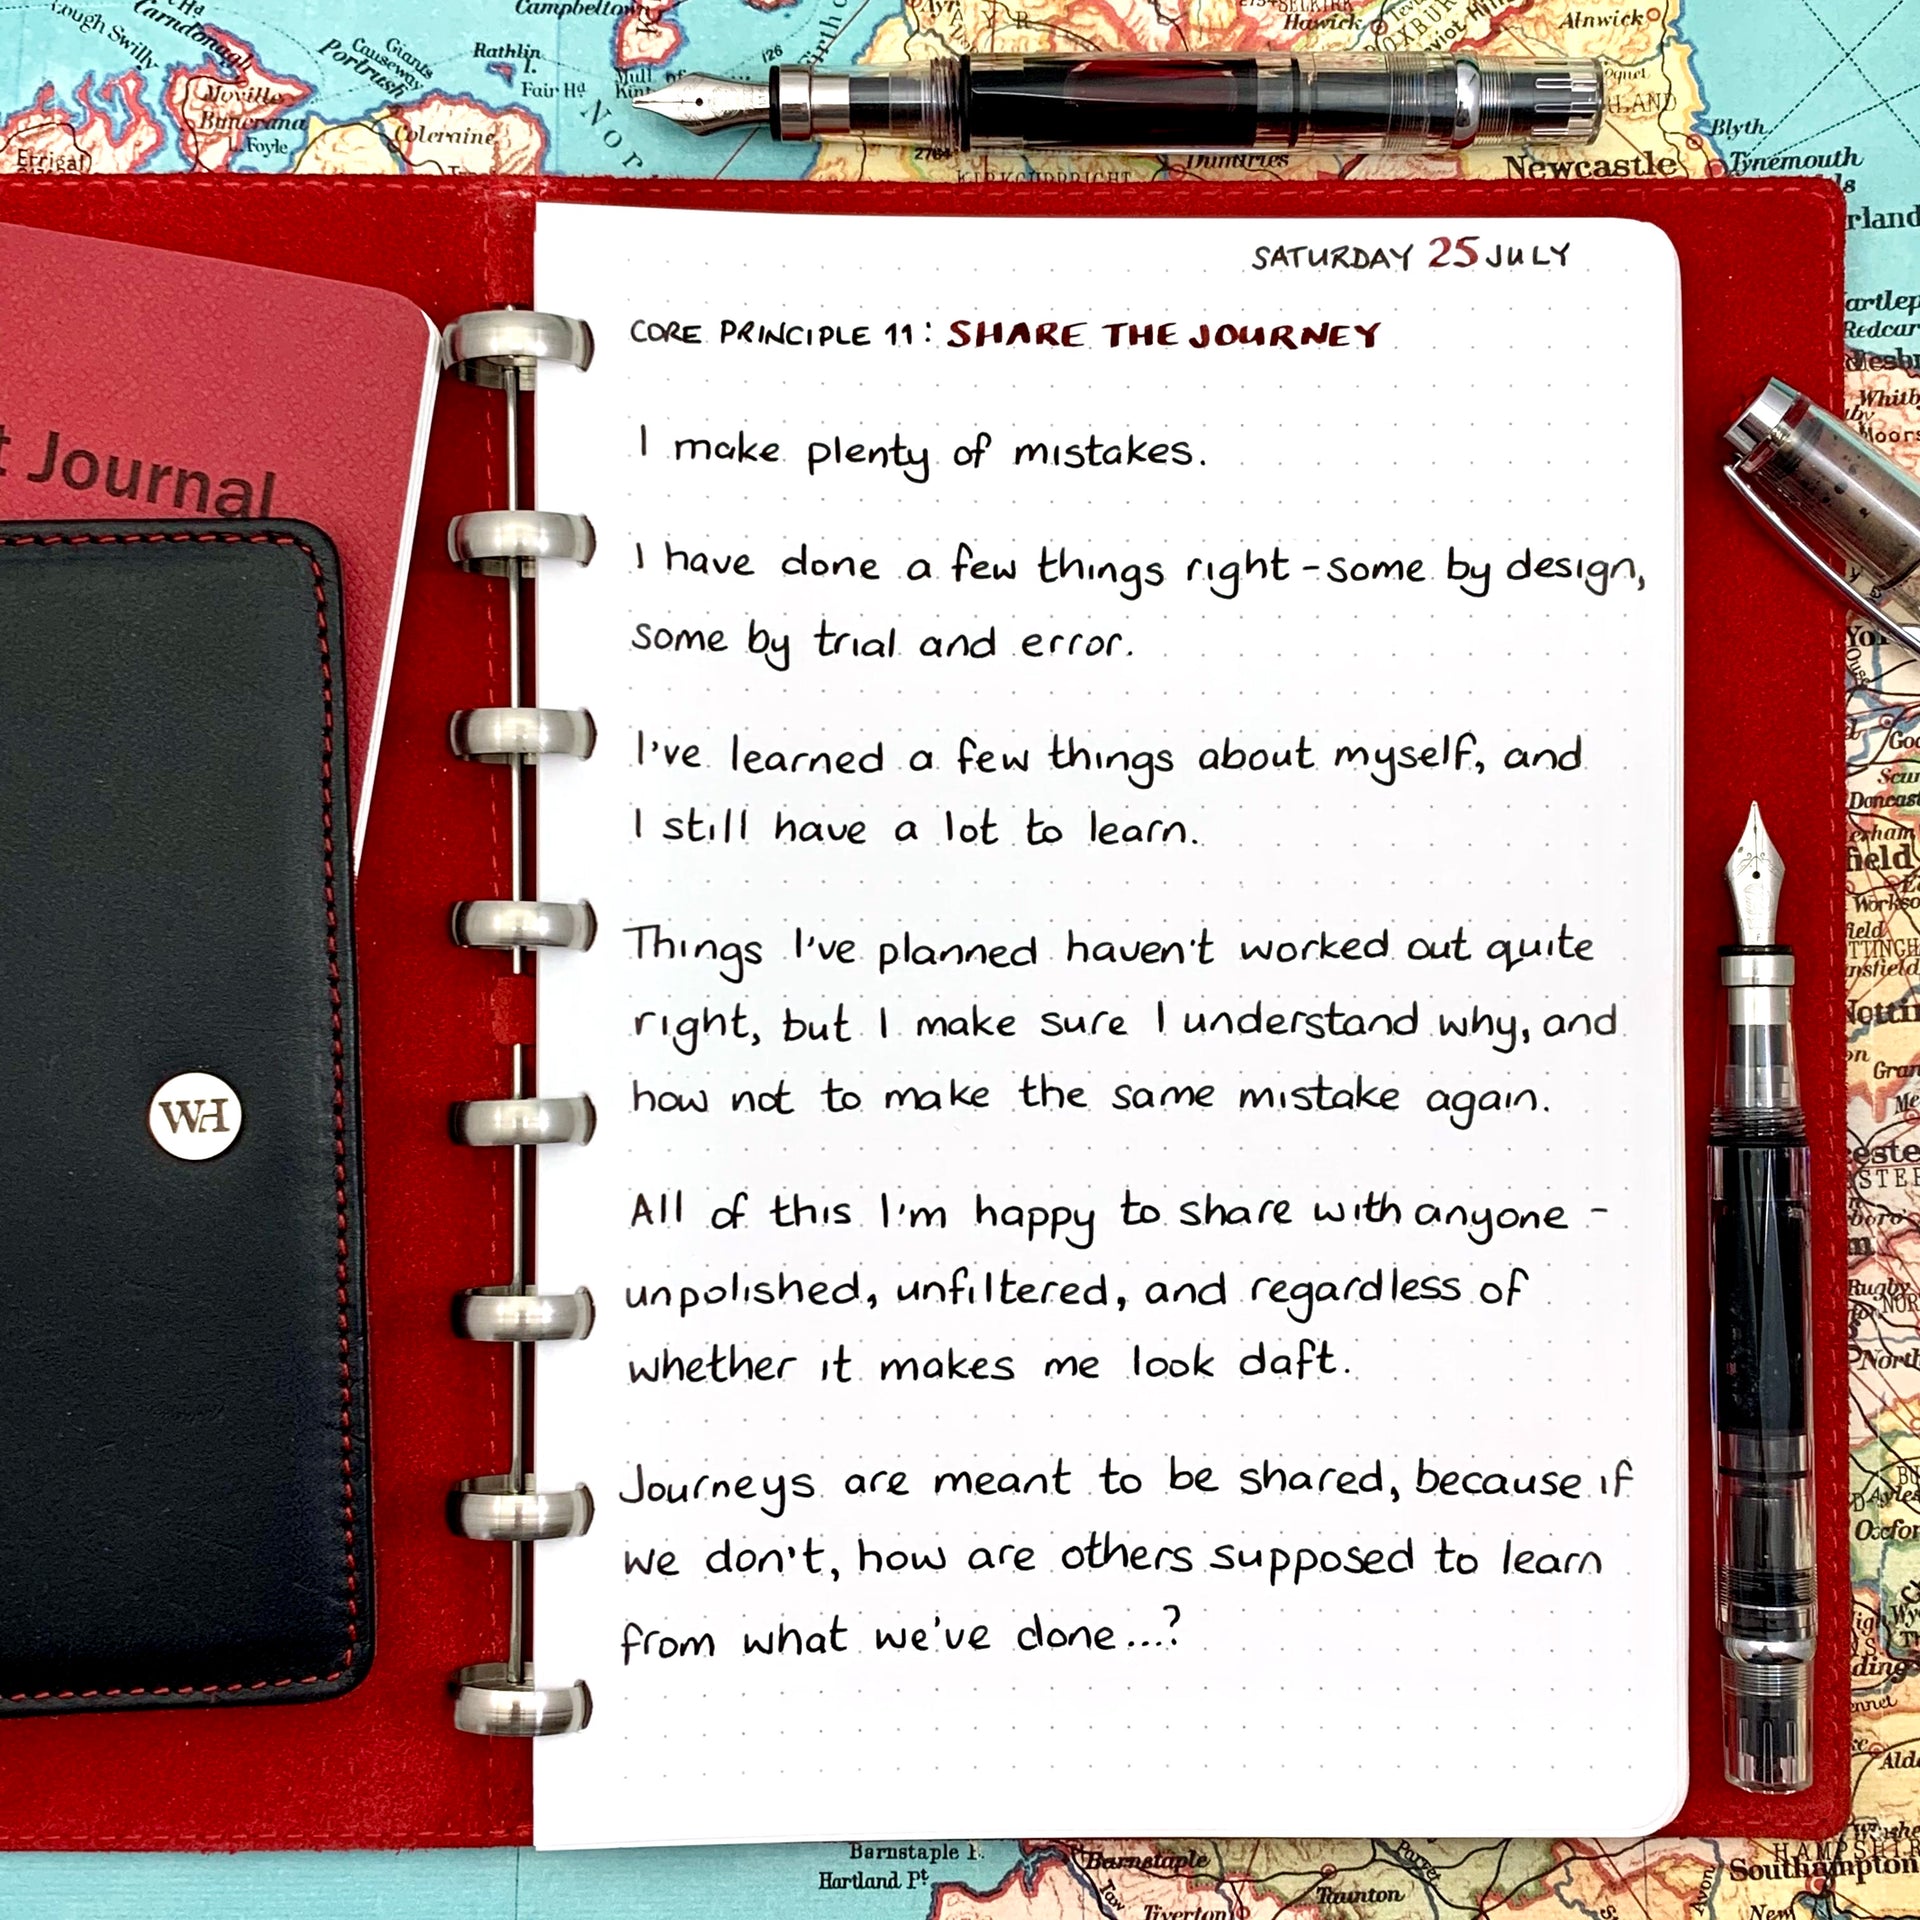 Campbeltown
Ayr
AYR
SELKIRK
Hawick
Alnwick
Lough Swilly
Carndonagh
Giants
Causeway
Portrush
Rathlin
I.
Fair Hd
Mull of
126
Moville
Buncrana
L. Foyle
Coleraine
Errigal
Nor
2764
Dumfries
KIRKCUDBRIGHT
Newcastle
Blyth
Tynemouth
SATURDAY 25 JULY
CORE PRINCIPLE 11: SHARE THE JOURNEY
I make plenty of mistakes.
I have done a few things right - some by design,
some by trial and error.
I've learned a few things about myself, and
I still have a lot to learn.
Things I've planned haven't worked out quite
right, but I make sure I understand why, and
how not to make the same mistake again.
All of this I'm happy to share with anyone -
unpolished, unfiltered, and regardless of
whether it makes me look daft.
Journeys are meant to be shared, because if
we don't, how are others supposed to learn
from what we've done...?
t Journal
WH
Redcar
Whitb
Moors
Doncast
Workso
Nottin
Gran
Rugby
North
Oxfor
Barnstaple
Hartland Pt
Barnstaple
Taw
Tiverton
Taunton
Parret
Avon
HAMPSHIR
Southampton
New